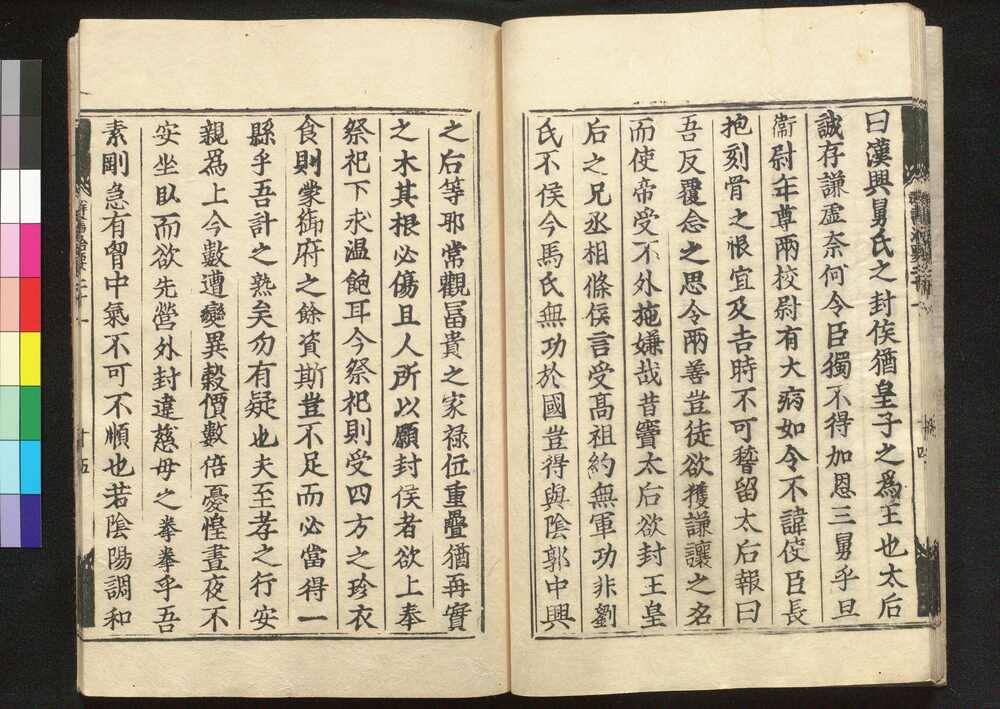 曰漢興舅氏之封侯猶皇子之為王也太后
誠存謙虛奈何令臣獨不得加恩三舅乎且
衛尉年尊兩校尉有大病如令不諱使臣長
抱刻骨之恨宜及吉時不可嵇留太后報曰
吾反覆念之思令兩善豈徒欲獲謙讓之名
而使帝受不外施嫌哉昔竇太后欲封王皇
后之兄丞相條侯言受高祖約無軍功非劉
氏不侯今馬氏無功於國豈得與陰郭中興
之后等耶常觀冨貴之家禄位重疊猶再實
之木其根必傷且人所以願封侯者欲上奉
祭祀下求温飽耳今祭祀則受四方之珍衣
食則蒙御府之餘資斯豈不足而必當得一
縣乎吾計之熟矣勿有疑也夫至孝之行安
親為上今數遭變異穀價數倍憂惶晝夜不
安坐臥而欲先營外封違慈母之拳拳乎吾
素剛急有胷中氣不可不順也若陰陽調和
十五